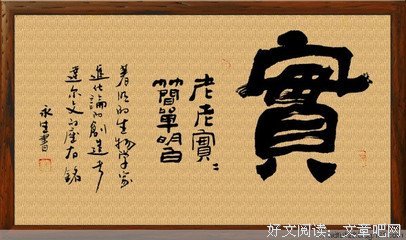 實
老老實〻
簡單明白
著名的生物学家
進化論的創造者
達尔文的座右銘
永生書
好文阅读：文章吧网